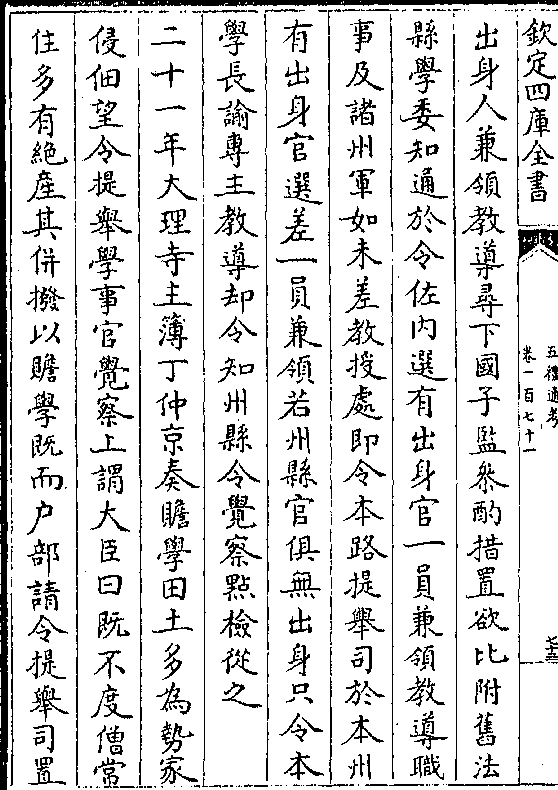 欽定四庫全書
五禮通考
卷一百七十一
七十三
出身人兼領教導尋下國子監叅酌措置欲比附舊法
縣學委知通於令佐内選有出身官一員兼領教導職
事及諸州軍如未差教授處即令本路提舉司於本州
有出身官選差一員兼領若州縣官俱無出身只令本
學長諭專主教導却令知州縣令覺察點檢從之
二十一年大理寺主簿丁仲京奏贍學田土多為勢家
侵佃望令提舉學事官覺察上謂大臣曰既不度僧常
住多有絶産其併撥以贍學既而户部請令提舉司置